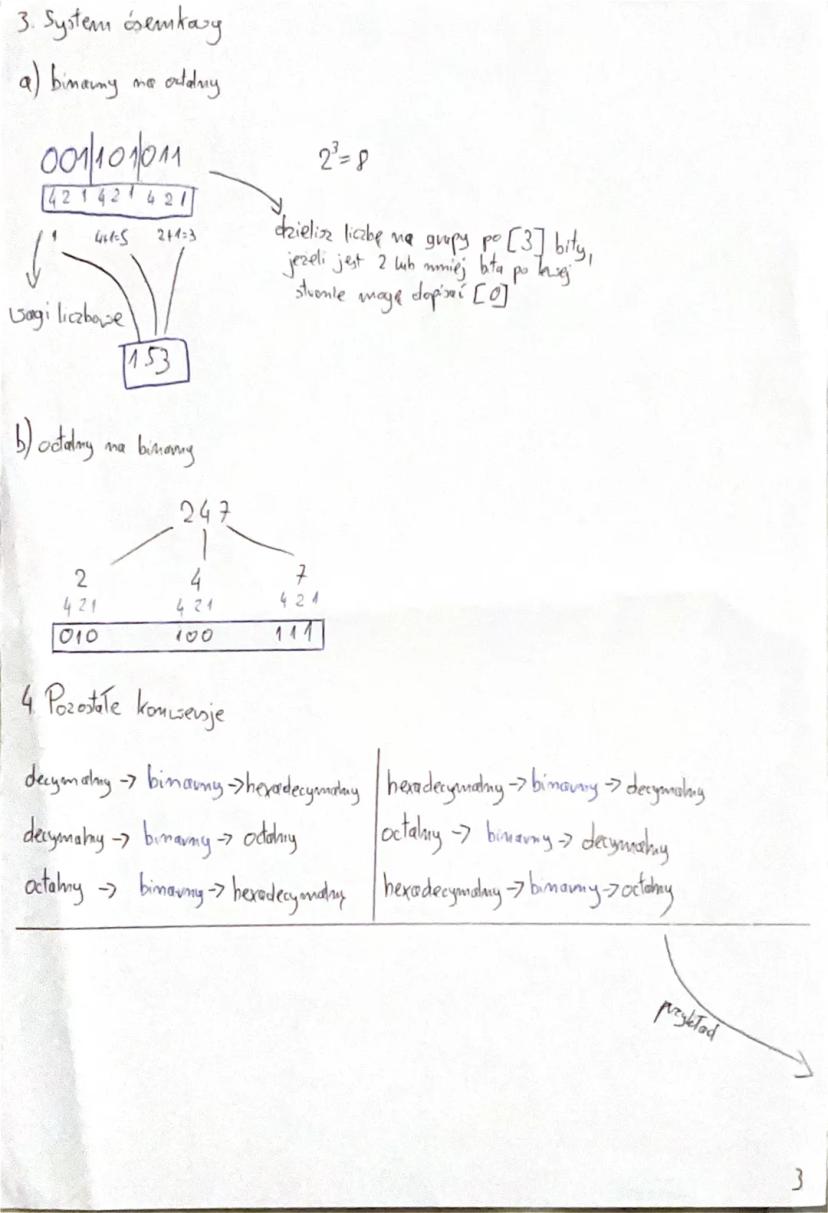 3. System ósemkowy
a) binarny na octalny
001|101|011
4 2 1 4 2 1 4 2 1
1 4+1=5 2+1=3
wagi liczbowe
153
2³=8
dzielisz liczbę na grupy po [3] bity,
jeżeli jest 2 lub mniej bita po lewej
stronie mogę dopisać [0]
b) octalny na binarny
247
2 4 7
4 2 1 4 2 1 4 2 1
010 100 111
4. Pozostałe konwersje
decymalny → binarny → hexadecymalny
decymalny → binarny → octalny
octalny → binarny → hexadecymalny
hexadecymalny → binarny → decymalny
octalny → binarny → decymalny
hexadecymalny → binarny → octalny
przykład
3